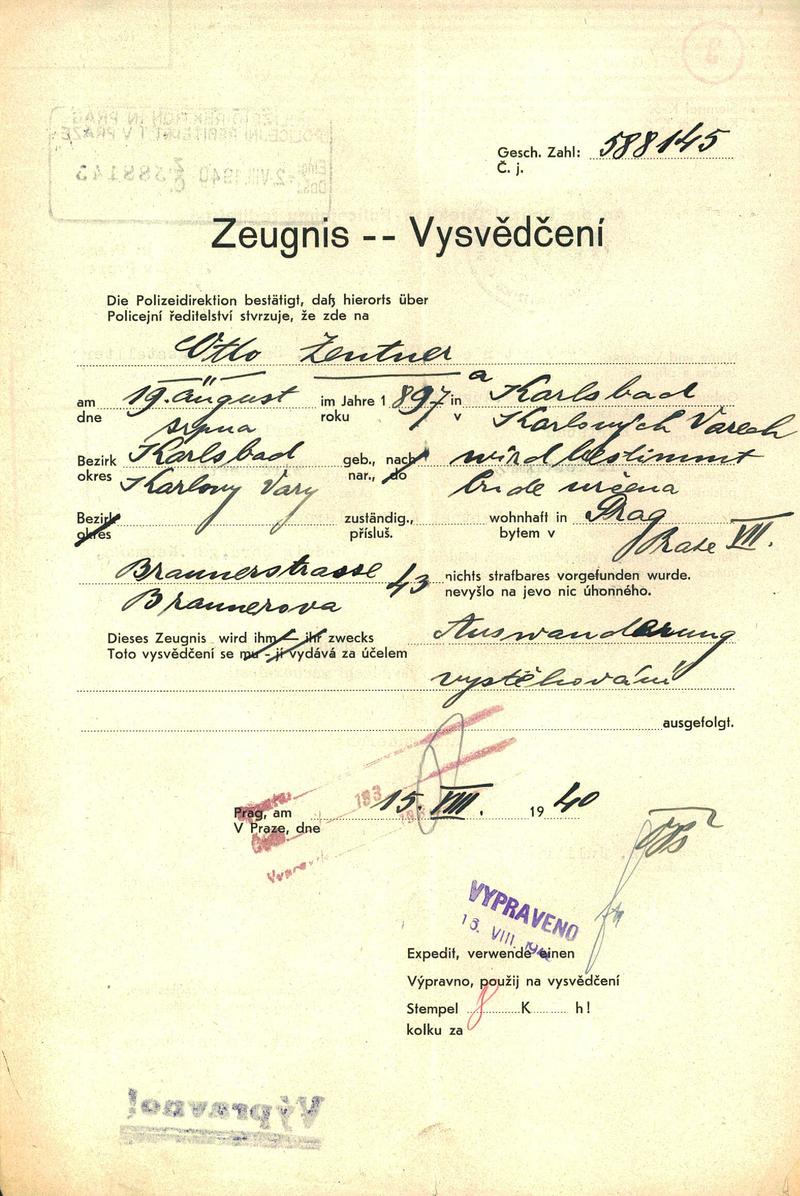 Gesch. Zahl: 588145
Č. j.
Zeugnis -- Vysvědčení
Die Polizeidirektion bestätigt, daß hierorts über
Policejní ředitelství stvrzuje, že zde na
Otto Zentner
am 19. august im Jahre 1 897 in Karlsbad
dne srpna roku v Karlových Varech
Bezirk Karlsbad geb., nach wird bestimmt
okres Karlovy Vary nar., do bude určena
Bezirk zuständig., wohnhaft in Prag
okres přísluš. bytem v Praze VII.
Braunerstrasse 43 nichts strafbares vorgefunden wurde.
Braunerova nevyšlo na jevo nic úhonného.
Dieses Zeugnis wird ihm — ihr zwecks Auswanderung
Toto vysvědčení se mu - jí vydává za účelem
vystěhování
ausgefolgt.
Prag, am 15. VIII. 19 40
V Praze, dne
VYPRAVENO
VIII.
Expedit, verwende einen
Výpravno, použij na vysvědčení
Stempel 8 K h!
kolku za
Výpravno!